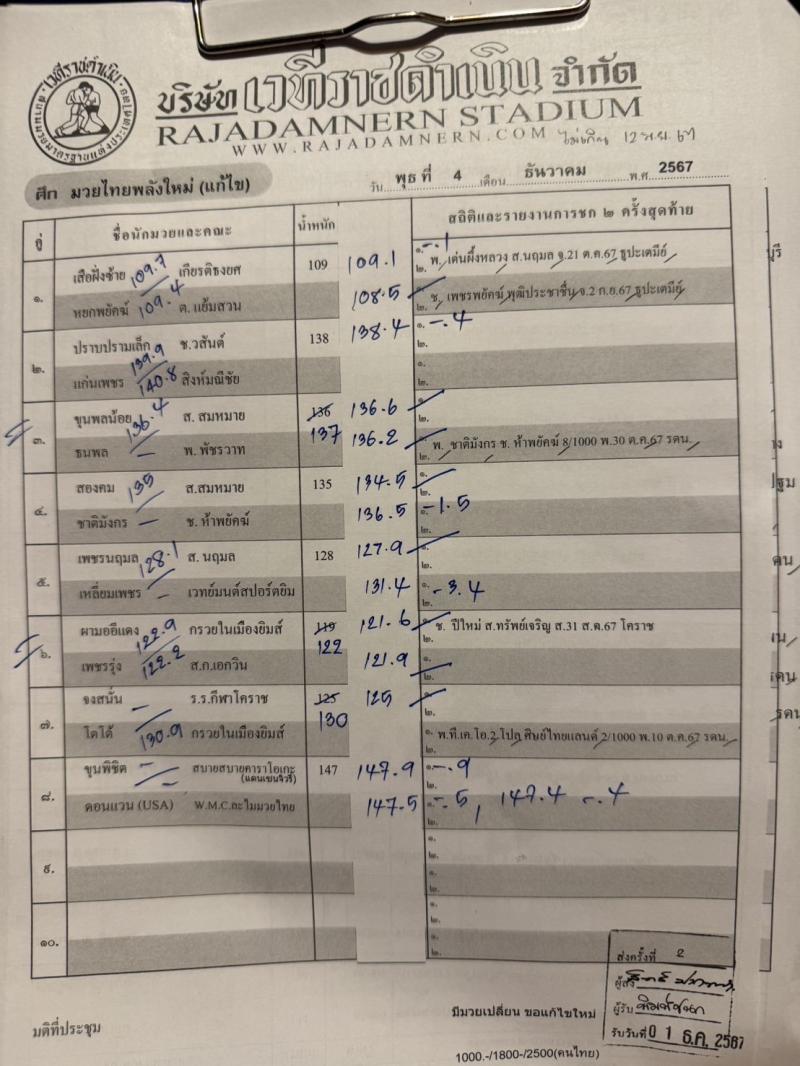 เวทีราชดำเนิน
บริษัท เวทีราชดำเนิน จำกัด
RAJADAMNERN STADIUM
WWW.RAJADAMNERN.COM
ไม่เกิน 12 พ.ย. 67
ศึก มวยไทยพลังใหม่ (แก้ไข)
วัน พุธ ที่ 4 เดือน ธันวาคม พ.ศ. 2567
คู่ ชื่อนักมวยและคณะ น้ำหนัก สถิติและรายงานการชก ๒ ครั้งสุดท้าย
๑. เสือฝั่งซ้าย 109.7 เกียรติธงยศ 109 109.1 ๑. -.1
๒. พ. เด่นผึ้งหลวง ส.นฤมล จ.21 ต.ค.67 ธูปะเตมีย์
หยกพยัคฆ์ 109.4 ต. แย้มสวน 108.5 ๑.
๒. ช. เพชรพยัคฆ์ พุฒิประชาชื่น จ.2 ก.ย.67 ธูปะเตมีย์
๒. ปราบปรามเล็ก 139.9 ช.วสันต์ 138 138.4 ๑. -.4
๒.
แก่นเพชร 140.8 สิงห์มณีชัย ๑.
๒.
๓. ขุนพลน้อย 136.4 ส. สมหมาย 136 137 136.6 ๑.
๒.
ธนพล - พ. พัชรวาท 136.2 ๑. พ. ชาติมังกร ช. ห้าพยัคฆ์ 8/1000 พ.30 ต.ค.67 รดน.
๒.
๔. สองคม 135 ส.สมหมาย 135 134.5 ๑.
๒.
ชาติมังกร - ช. ห้าพยัคฆ์ 136.5 ๑. -1.5
๒.
๕. เพชรนฤมล 128.1 ส. นฤมล 128 127.9 ๑.
๒.
เหลี่ยมเพชร - เวทย์มนต์สปอร์ตยิม 131.4 ๑. -3.4
๒.
๖. ผามออีแดง 122.9 กรวยในเมืองยิมส์ 119 122 121.6 ๑. ช. ปีใหม่ ส.ทรัพย์เจริญ ส.31 ส.ค.67 โคราช
๒.
เพชรรุ่ง 122.2 ส.ก.เอกวิน 121.9 ๑.
๒.
๗. จงสนั่น - ร.ร.กีฬาโคราช 125 130 125 ๑.
๒.
โตโต้ 130.9 กรวยในเมืองยิมส์ ๑. พ.ที.เค.โอ.2 โปก ศิษย์ไทยแลนด์ 2/1000 พ.10 ต.ค.67 รดน.
๒.
๘. ขุนพิชิต - สบายสบายคาราโอเกะ 147 147.9 ๑. -.9
(แดนเซนจิวรี่) ๒.
ดอนแวน (USA) W.M.C.ละไมมวยไทย 147.5 ๑. -.5, 147.4 -.4
๒.
๙. ๑.
๒.
๑.
๒.
๑๐. ๑.
๒.
๑.
๒.
ส่งครั้งที่ 2
ผู้ส่ง
ผู้รับ พิมพ์ชนก
รับวันที่ 0 1 ธ.ค. 2567
มติที่ประชุม
มีมวยเปลี่ยน ขอแก้ไขใหม่
1000.-/1800-/2500(คนไทย)